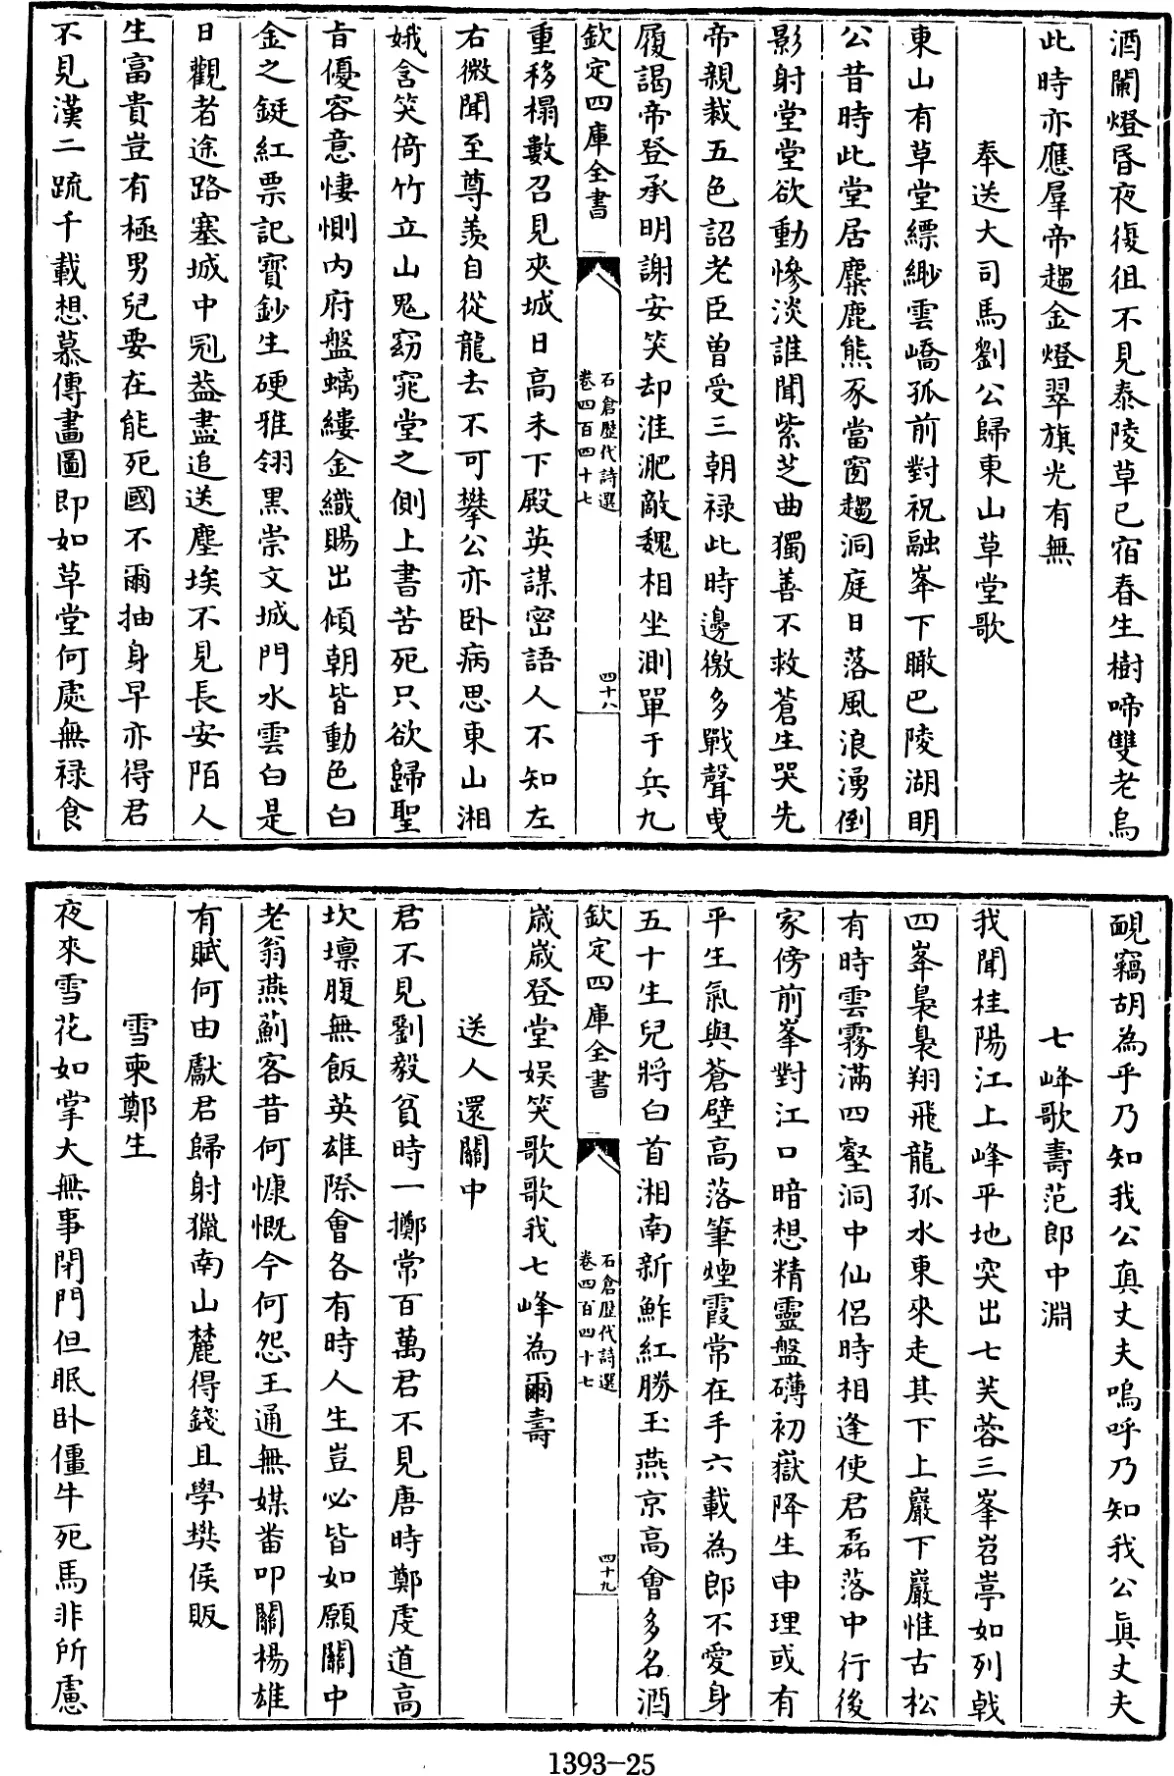 酒闌燈昏夜復徂不見泰陵草已宿春生樹啼雙老烏
此時亦應羣帝趨金燈翠旗光有無
奉送大司馬劉公歸東山草堂歌
東山有草堂縹緲雲嶠孤前對祝融峯下瞰巴陵湖明
公昔時此堂居麋鹿熊豕當窗趨洞庭日落風浪湧倒
影射堂堂欲動慘淡誰聞紫芝曲獨善不救蒼生哭先
帝親裁五色詔老臣曾受三朝禄此時邊徼多戰聲曳
履謁帝登承明謝安笑却淮淝敵魏相坐測單于兵九
欽定四庫全書
石倉歷代詩選
卷四百四十七
四十八
重移榻數召見夾城日高未下殿英謀密語人不知左
右微聞至尊羨自從龍去不可攀公亦卧病思東山湘
娥含笑倚竹立山鬼窈窕堂之側上書苦死只欲歸聖
旨優容意悽惻内府盤螭縷金織賜出傾朝皆動色白
金之鋌紅票記寳鈔生硬雅翎黑崇文城門水雲白是
日觀者途路塞城中冠葢盡追送塵埃不見長安陌人
生富貴豈有極男兒要在能死國不爾抽身早亦得君
不見漢二疏千載想慕傳畫圖即如草堂何處無禄食
覥竊胡為乎乃知我公真丈夫嗚呼乃知我公真丈夫
七峰歌壽范郎中淵
我聞桂陽江上峰平地突出七芙蓉三峯岧嵉如列戟
四峯裊裊翔飛龍孤水東來走其下上巖下巖惟古松
有時雲霧滿四壑洞中仙侣時相逢使君磊落中行後
家傍前峯對江口暗想精靈盤礴初嶽降生申理或有
平生氣與蒼壁高落筆煙霞常在手六載為郎不愛身
五十生兒將白首湘南新鮓紅勝玉燕京高會多名酒
欽定四庫全書
石倉歷代詩選
卷四百四十七
四十九
嵗嵗登堂娱笑歌歌我七峰為爾壽
送人還關中
君不見劉毅貧時一擲常百萬君不見唐時鄭虔道高
坎壈腹無飯英雄際會各有時人生豈必皆如願關中
老翁燕薊客昔何慷慨今何怨王通無媒畨叩關楊雄
有賦何由獻君歸射獵南山麓得錢且學樊侯販
雪柬鄭生
夜來雪花如掌大無事閉門但眠卧僵牛死馬非所慮
1393-25